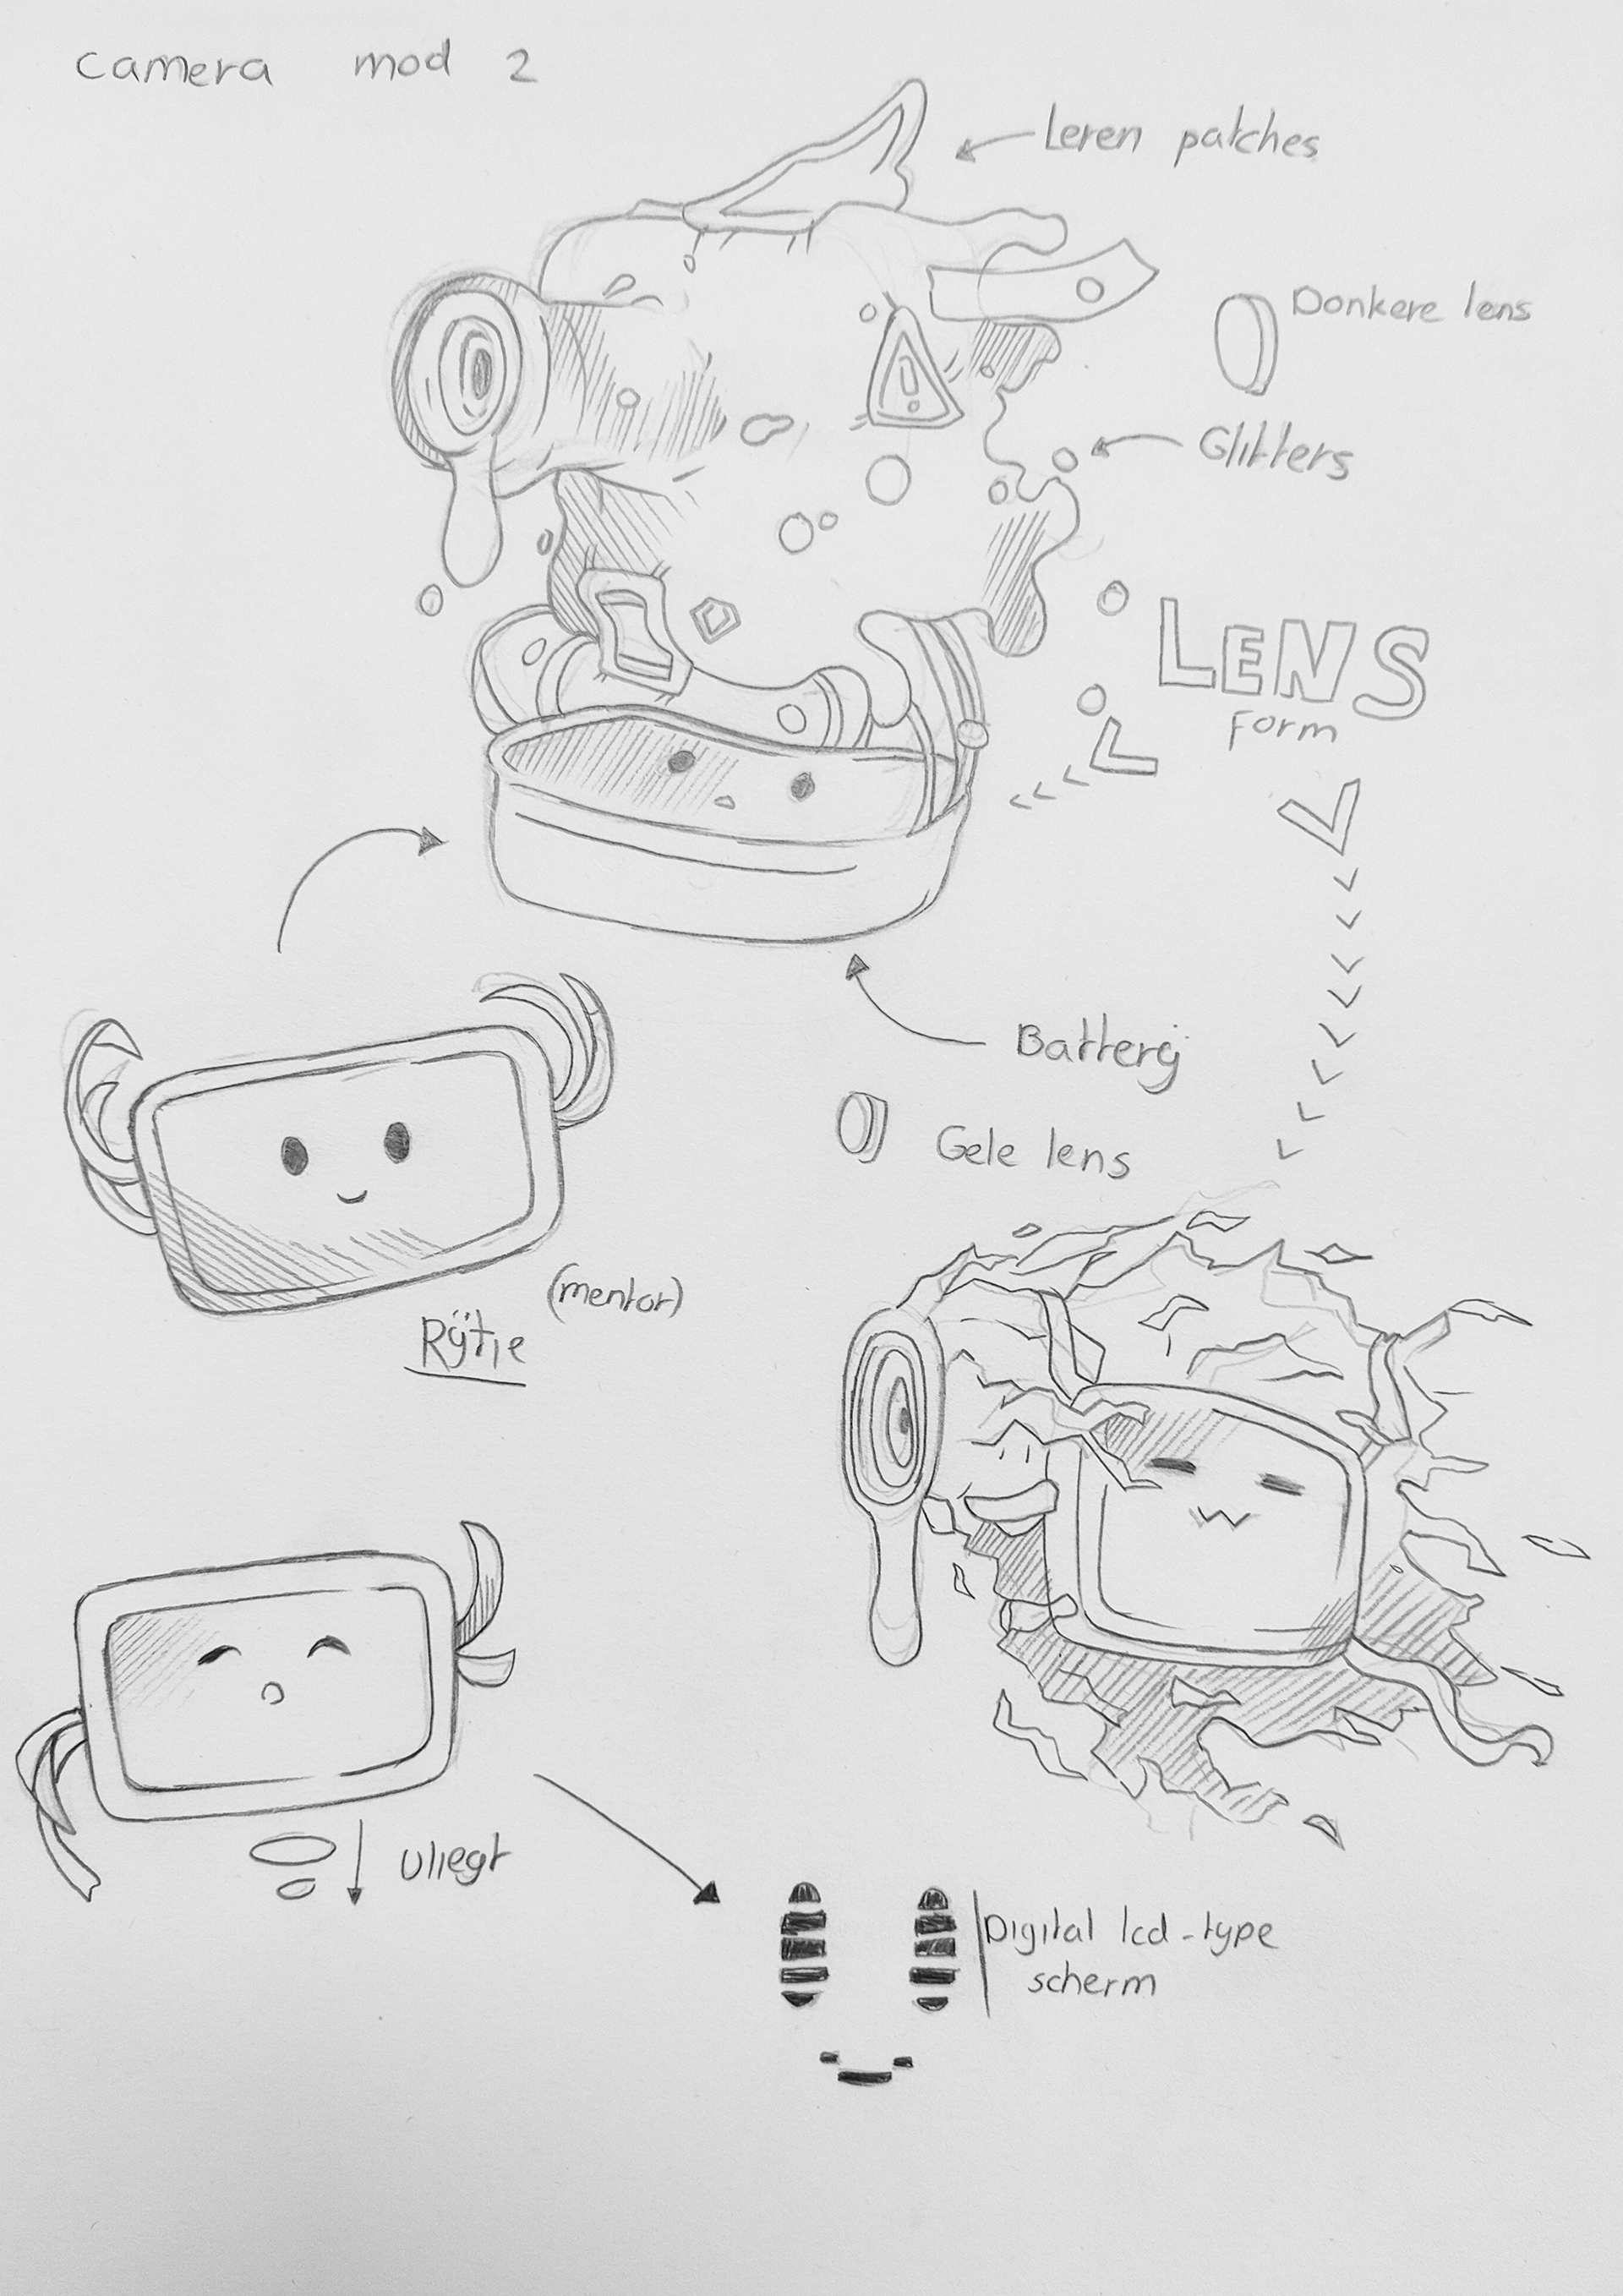 camera mod 2
Leren patches
Donkere lens
Glitters
LENS
Form
Batterij
Gele lens
(mentor)
Rijtje
vliegt
Digital lcd-type
scherm